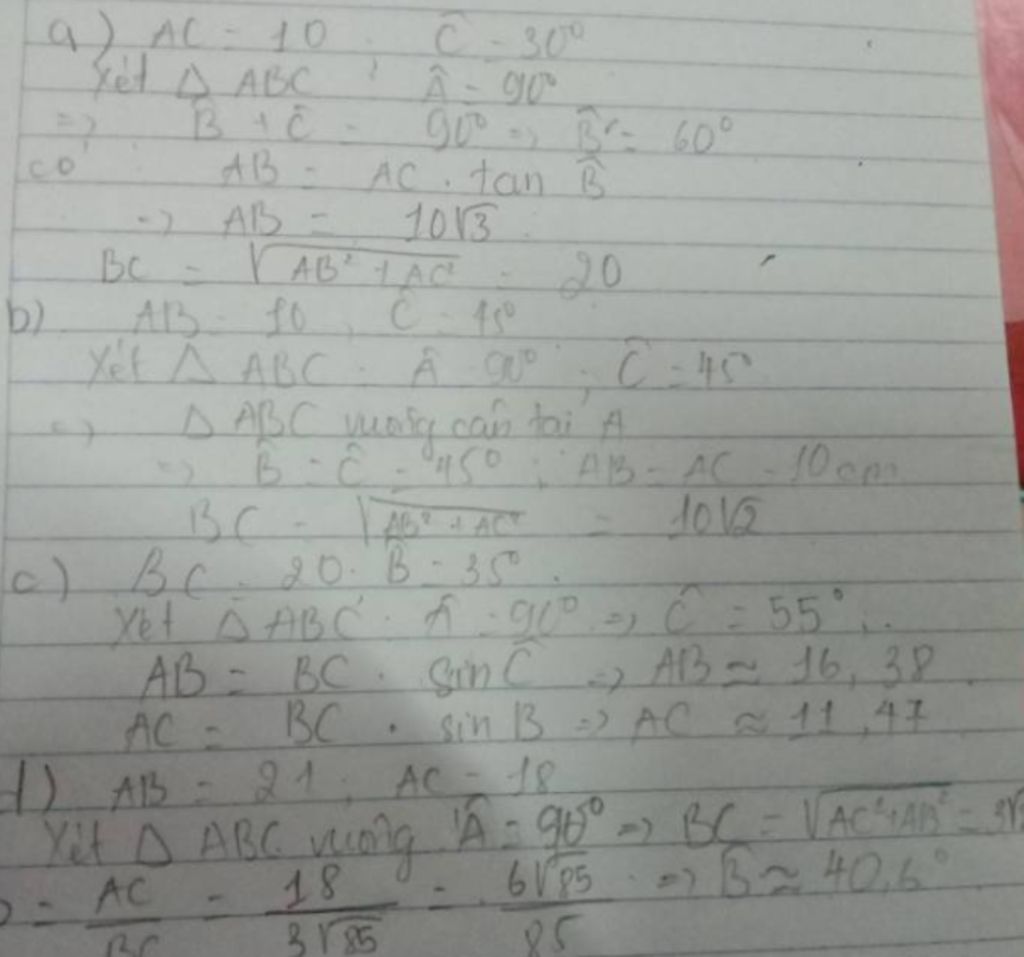 a) AC = 10 ; Ĉ = 30°
Xét Δ ABC Â = 90°
=> B̂ + Ĉ = 90° => B̂ = 60°
có AB = AC . tan B̂
=> AB = 10√3
BC = √AB² + AC² = 20
b) AB = 10 , Ĉ = 45°
Xét Δ ABC . Â = 90° ; Ĉ = 45°
=> Δ ABC vuông cân tại A
=> B̂ = Ĉ = 45° ; AB = AC = 10cm
BC = √AB² + AC² = 10√2
c) BC = 20 . B̂ = 35°.
Xét Δ ABC . Â = 90° => Ĉ = 55°
AB = BC . sin Ĉ => AB ≈ 16,38
AC = BC . sin B => AC ≈ 11,47
d) AB = 21 ; AC = 18
Xét Δ ABC vuông Â = 90° => BC = √AC²+AB² = 3√
= AC/BC = 18/3√85 = 6√85/85 => B̂ ≈ 40,6°